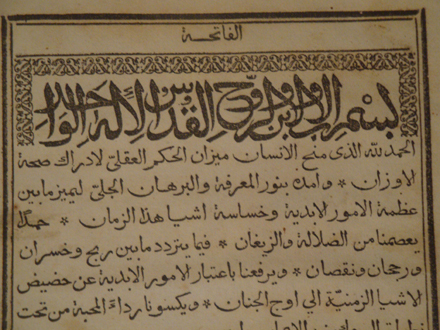 الفاتحة
بسم الاب والابن والروح القدس الاله الواحد
الحمد لله الذي منح الانسان ميزان الحكم العقلي لادراك صحة
الاوزان * وامده بنور المعرفة والبرهان الجلي ليميز ما بين
عظمة الامور الابدية وخساسة اشيا هذا الزمان * حمدًا
يعصمنا من الضلالة والزيغان * فيما يتردد ما بين ربح وخسران
ورجحان ونقصان * ويرفعنا باعتبار الامور الابدية عن حضيض
الاشيا الزمنية الي اوج الجنان * ويكسونا رداء المحبة من تحت